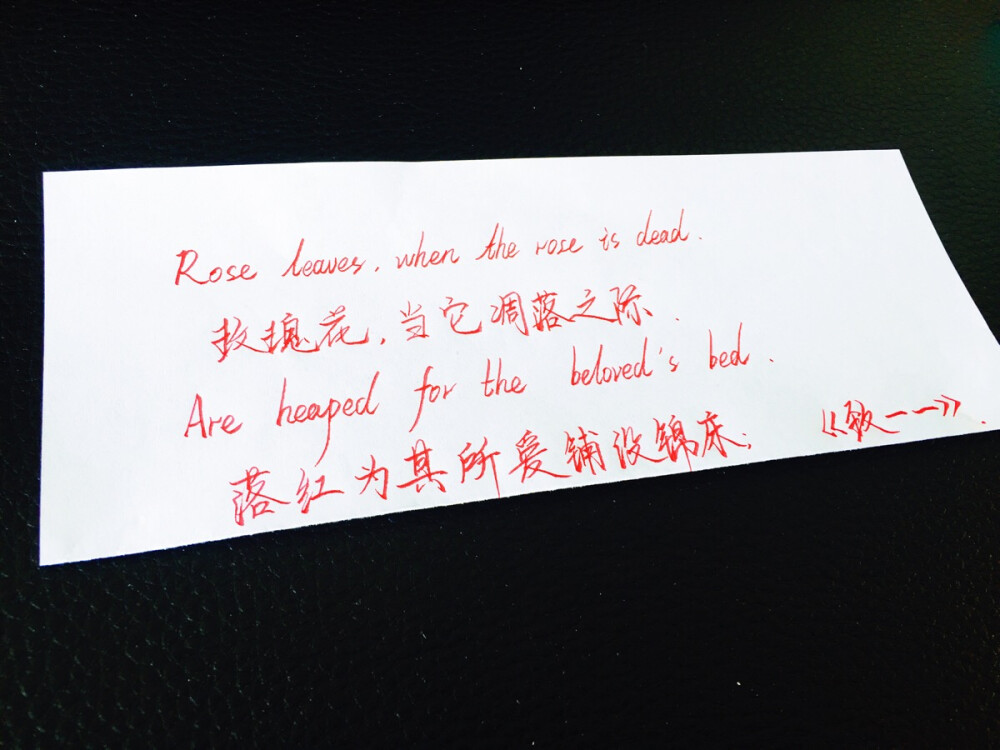 Rose leaves, when the rose is dead.
玫瑰花,当它凋落之际.
Are heaped for the beloved's bed.
落红为其所爱铺设锦床;
《致一一》.